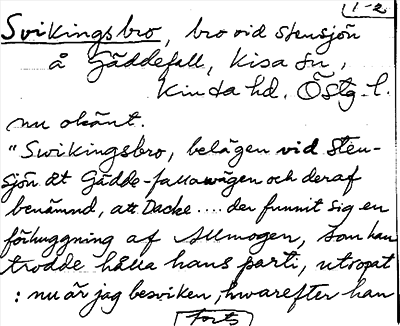 1-2
Svikingsbro, bro vid Stensjön
å Gäddefall, Kisa sn,
Kinda hd. Östg. l.
nu okänt.
"Swikingsbro, belägen vid Sten-
sjön åt Gädde-fallawägen och deraf
benämnd, att Dacke .... der funnit sig en
förhuggning af Allmogen, som han
trodde hålla hans parti, utropat
: nu är jag besviken, hwarefter han
forts